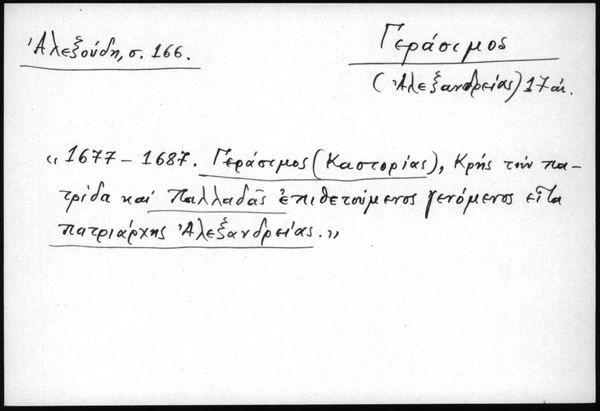 Ἀλεξούδη, σ. 166.
Γεράσιμος
(Ἀλεξανδρείας) 17 αἰ.
« 1677 – 1687. Γεράσιμος (Καστορίας), Κρής τήν πα-
τρίδα καί Παλλαδᾶς ἐπιθετούμενος γενόμενος εἶτα
πατριάρχης Ἀλεξανδρείας. »